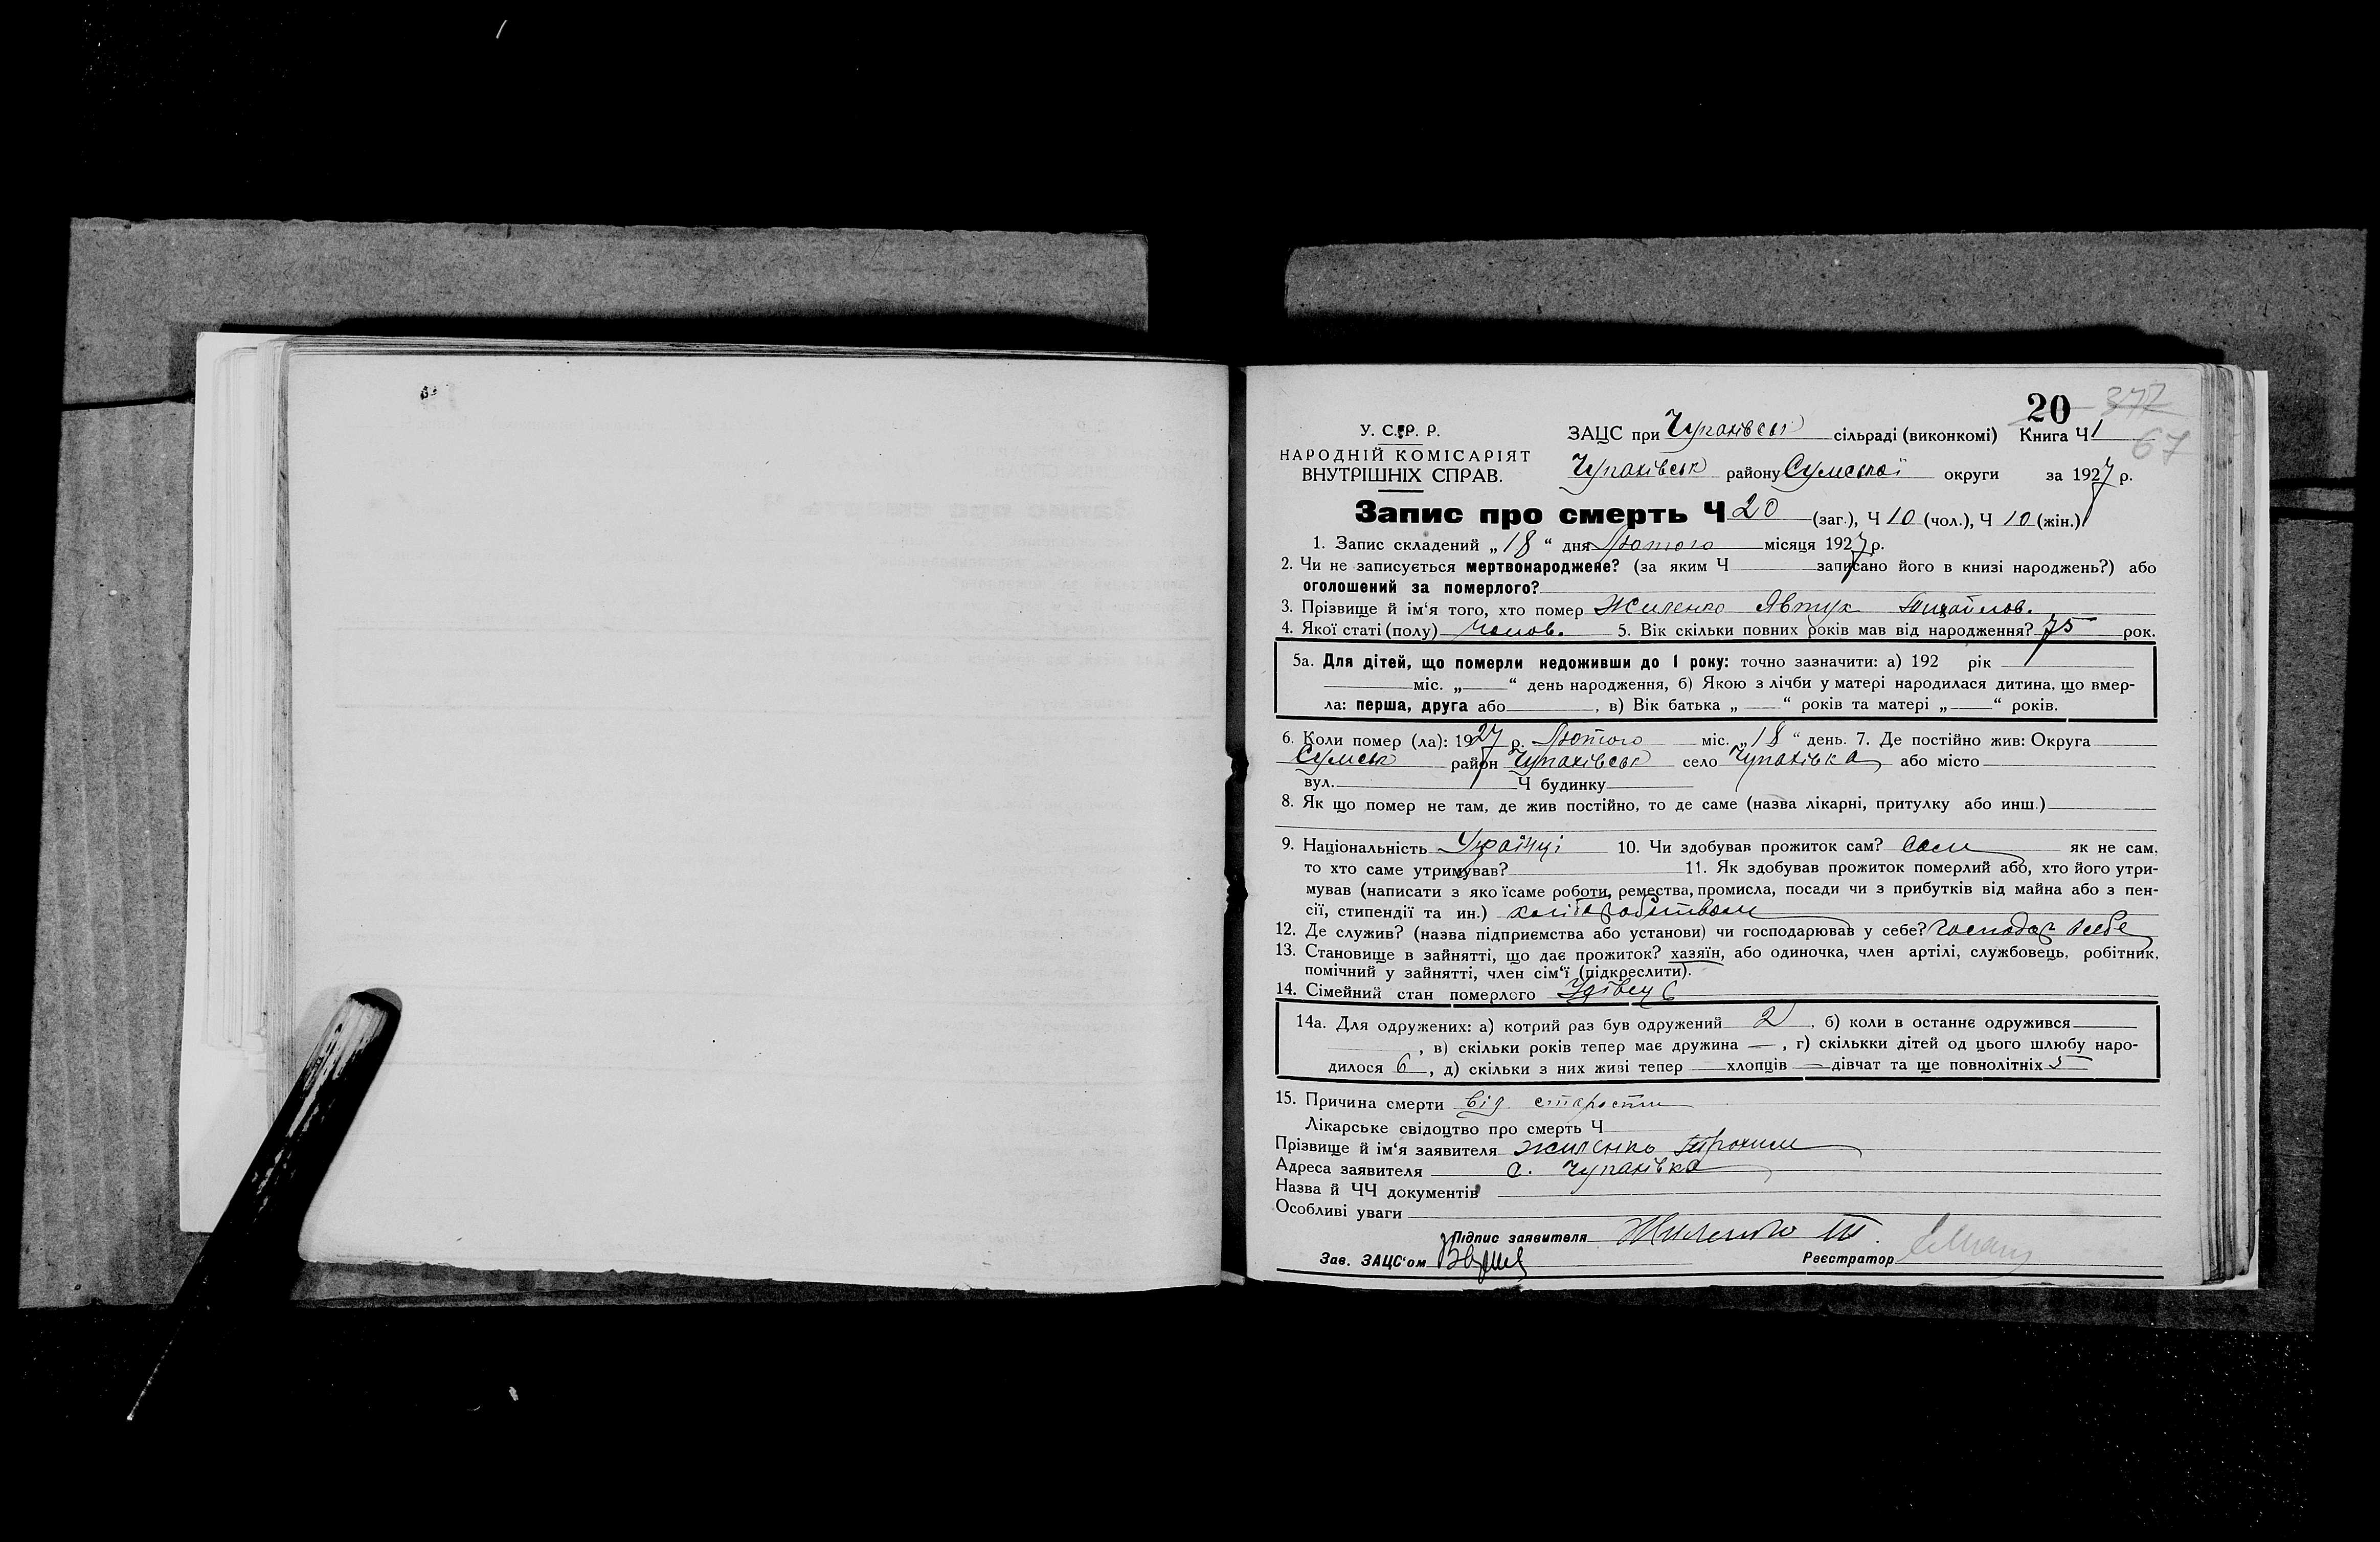 20 377
67
У. С. Р. Р.
НАРОДНІЙ КОМІСАРІЯТ
ВНУТРІШНІХ СПРАВ.
ЗАЦС при Чупахівськ сільраді (виконкомі) Книга Ч 1
Чупахівськ району Сумської округи за 1927 р.
Запис про смерть Ч 20 (заг.), Ч 10 (чол.), Ч 10 (жін.)
1. Запис складений „18“ дня Лютого місяця 1927 р.
2. Чи не записується мертвонароджене? (за яким Ч записано його в книзі народжень?) або
оголошений за померлого?
3. Прізвище й ім‘я того, хто помер Жиленко Явтух Михайлов.
4. Якої статі (полу) чолов. 5. Вік скільки повних років мав від народження? 75 рок.
5а. Для дітей, що померли недоживши до 1 року: точно зазначити: а) 192 рік
міс. „ “ день народження, б) Якою з лічби у матері народилася дитина, що вмер-
ла: перша, друга або , в) Вік батька „ “ років та матері „ “ років.
6. Коли помер (ла): 1927 р. Лютого міс. „18“ день. 7. Де постійно жив: Округа
Сумськ район Чупахівськ село Чупахівка або місто
вул. Ч будинку
8. Як що помер не там, де жив постійно, то де саме (назва лікарні, притулку або инш.)
9. Національність Українці 10. Чи здобував прожиток сам? сам як не сам,
то хто саме утримував? 11. Як здобував прожиток померлий або, хто його утри-
мував (написати з яко їсаме роботи, ремества, промисла, посади чи з прибутків від майна або з пен-
сії, стипендії та ин.) хліборобством
12. Де служив? (назва підприємства або установи) чи господарював у себе? господар в себе
13. Становище в зайнятті, що дає прожиток? хазяїн, або одиночка, член артілі, службовець, робітник,
помічний у зайнятті, член сім‘ї (підкреслити).
14. Сімейний стан померлого Удівець
14а. Для одружених: а) котрий раз був одружений 2, б) коли в останнє одружився
, в) скільки років тепер має дружина — , г) скількки дітей од цього шлюбу наро-
дилося 6, д) скільки з них живі тепер — хлопців — дівчат та ще повнолітніх 5
15. Причина смерти від старости
Лікарське свідоцтво про смерть Ч
Прізвище й ім‘я заявителя Жиленко Трохим
Адреса заявителя с. Чупахівка
Назва й ЧЧ документів
Особливі уваги
Підпис заявителя Жиленко Т.
Зав. ЗАЦС‘ом Реєстратор